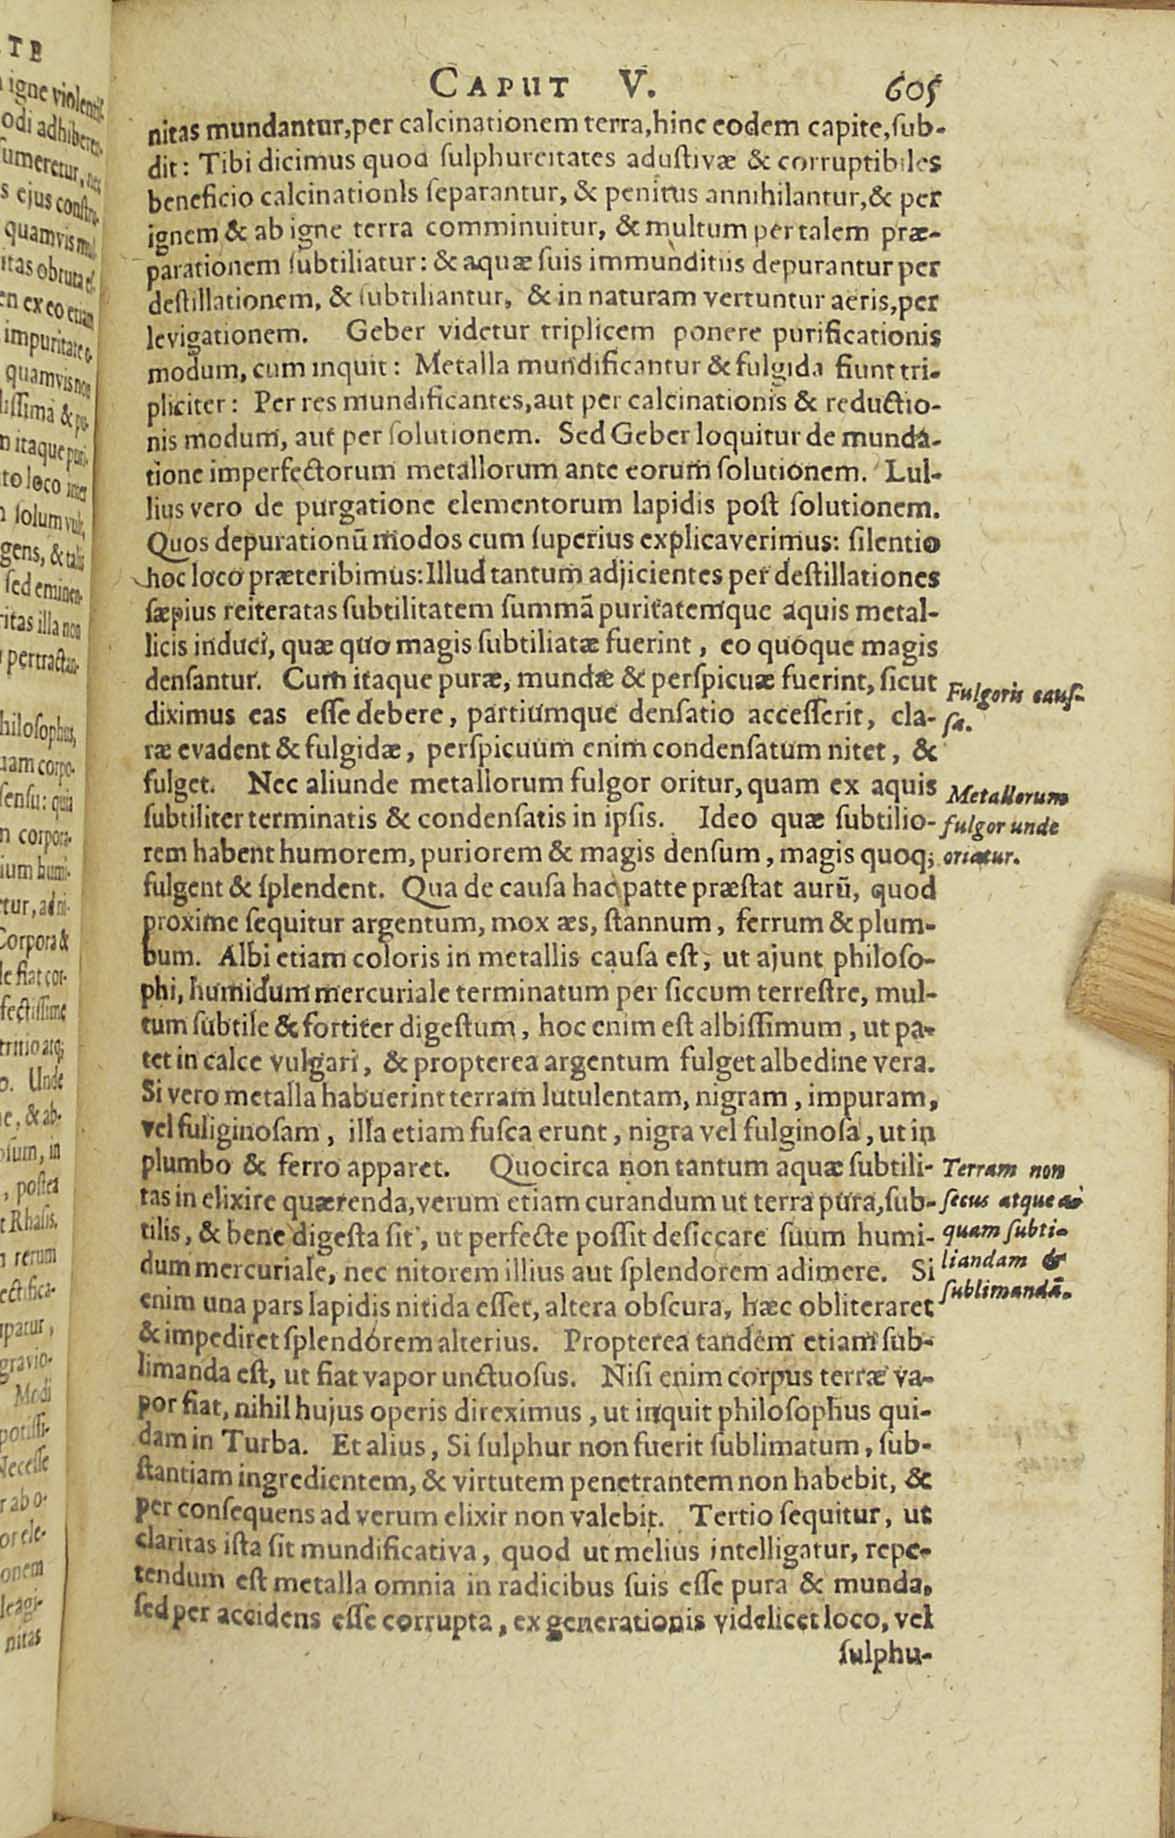 CAPUT V. 605
nitas mundantur, per calcinationem terra, hinc eodem capite, ſub-
dit: Tibi dicimus quod ſulphureitates aduſtivæ & corruptibiles
beneficio calcinationis ſeparantur, & penitus annihilantur, & per
ignem & ab igne terra comminuitur, & multum per talem præ-
parationem ſubtiliatur: & aquæ ſuis immunditiis depurantur per
deſtillationem, & ſubtiliantur, & in naturam vertuntur aeris, per
levigationem. Geber videtur triplicem ponere purificationis
modum, cum inquit: Metalla mundificantur & fulgida fiunt tri-
pliciter: Per res mundificantes, aut per calcinationis & reductio-
nis modum, aut per ſolutionem. Sed Geber loquitur de munda-
tione imperfectorum metallorum ante eorum ſolutionem. Lul-
lius vero de purgatione elementorum lapidis poſt ſolutionem.
Quos depurationũ modos cum ſuperius explicaverimus: ſilentio
hoc loco præteribimus: Illud tantum adjicientes per deſtillationes
ſæpius reiteratas ſubtilitatem ſummã puritatemque aquis metal-
licis induci, quæ quo magis ſubtiliatæ fuerint, eo quoque magis
denſantur. Cum itaque puræ, mundæ & perſpicuæ fuerint, ſicut
diximus eas eſſe debere, partiumque denſatio acceſſerit, cla-
ræ evadent & fulgidæ, perſpicuum enim condenſatum nitet, &
fulget. Nec aliunde metallorum fulgor oritur, quam ex aquis
ſubtiliter terminatis & condenſatis in ipſis. Ideo quæ ſubtilio-
rem habent humorem, puriorem & magis denſum, magis quoq;
fulgent & ſplendent. Qua de cauſa hac patte præſtat aurũ, quod
proxime ſequitur argentum, mox æs, ſtannum, ferrum & plum-
bum. Albi etiam coloris in metallis cauſa eſt, ut ajunt philoſo-
phi, humidum mercuriale terminatum per ſiccum terreſtre, mul-
tum ſubtile & fortiter digeſtum, hoc enim eſt albiſſimum, ut pa-
tet in calce vulgari, & propterea argentum fulget albedine vera.
Si vero metalla habuerint terram lutulentam, nigram, impuram,
vel fuliginoſam, illa etiam fuſca erunt, nigra vel fulginoſa, ut in
plumbo & ferro apparet. Quocirca non tantum aquæ ſubtili-
tas in elixire quærenda, verum etiam curandum ut terra pura, ſub-
tilis, & bene digeſta ſit, ut perfecte poſſit deſiccare ſuum humi-
dum mercuriale, nec nitorem illius aut ſplendorem adimere. Si
enim una pars lapidis nitida eſſet, altera obſcura, hæc obliteraret
& impediret ſplendorem alterius. Propterea tandem etiam ſub-
limanda eſt, ut fiat vapor unctuoſus. Niſi enim corpus terræ va-
por fiat, nihil hujus operis direximus, ut inquit philoſophus qui-
dam in Turba. Et alius, Si ſulphur non fuerit ſublimatum, ſub-
ſtantiam ingredientem, & virtutem penetrantem non habebit, &
per conſequens ad verum elixir non valebit. Tertio ſequitur, ut
claritas iſta ſit mundificativa, quod ut melius intelligatur, repe-
tendum eſt metalla omnia in radicibus ſuis eſſe pura & munda,
ſed per accidens eſſe corrupta, ex generationis videlicet loco, vel
ſulphu-
Fulgoris cauſ-
ſa.
Metallorum
fulgor unde
oriatur.
Terram non
ſecus atque
quam ſubti-
liandam &
ſublimandã.